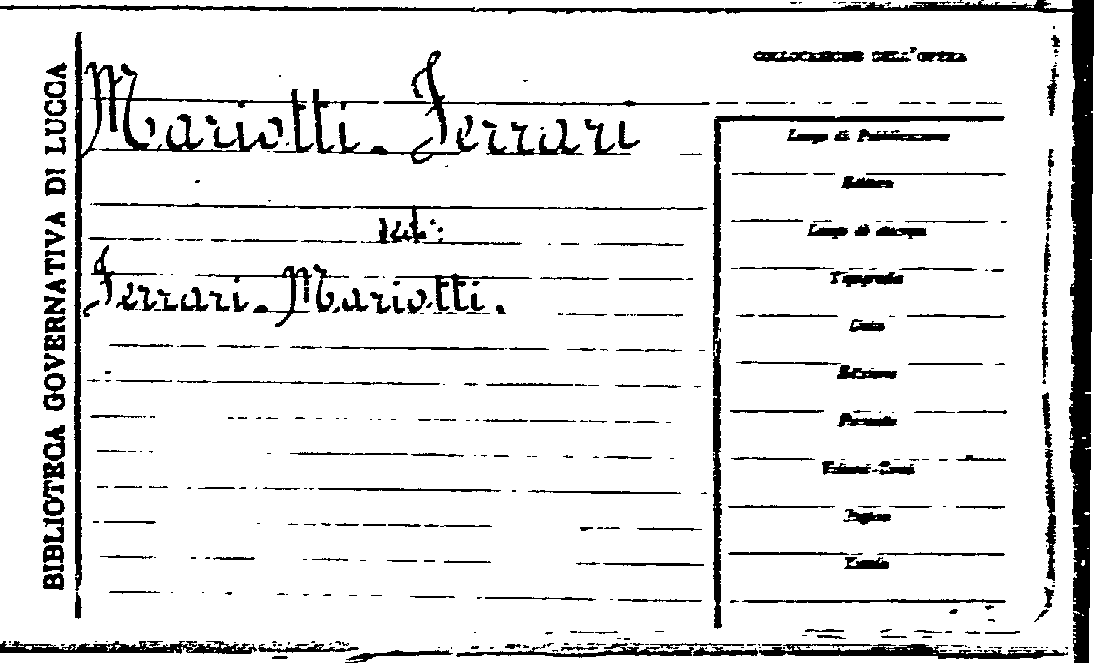 BIBLIOTECA GOVERNATIVA DI LUCCA
Mariotti. Ferrari
Ved:
Ferrari. Mariotti.
COLLOCAZIONE DELL'OPERA
Luogo di Pubblicazione
Editore
Luogo di stampa
Tipografia
Data
Edizione
Formato
Volumi-Tomi
Pagine
Tavole